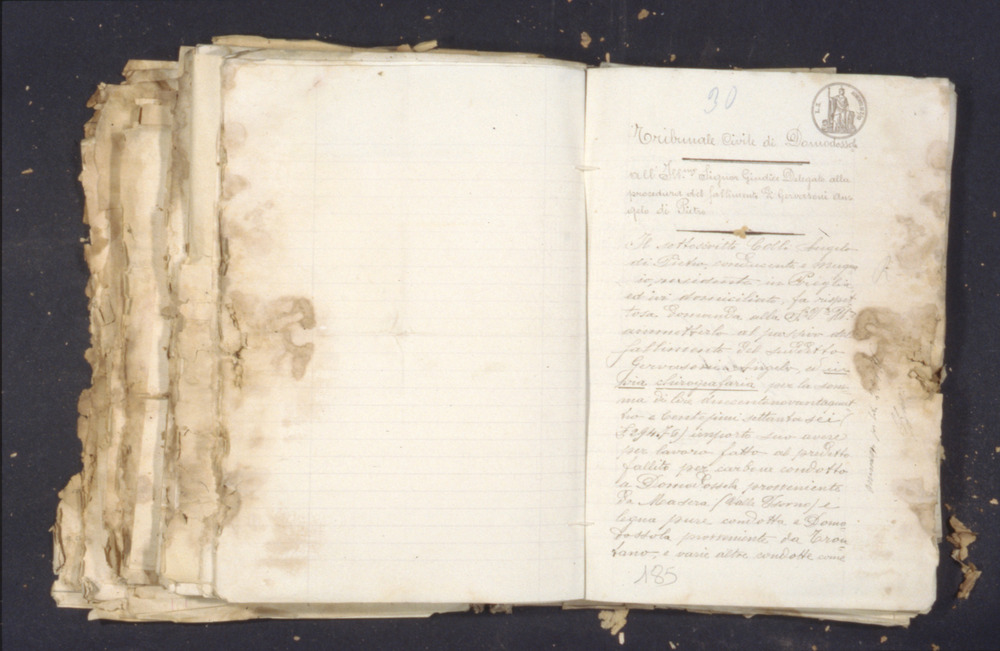 30
Tribunale Civile di Domodossola
All Ill.mo Signor Giudice Delegato alla
procedura del fallimento di Gervasoni An
gelo di Pietro
Il sottoscritto Colli Angelo
di Pietro, conducente e
residente in Preglia
ed ivi domiciliato, fa rispet
tosa domanda alla S. V. Ill.ma
ammetterlo al passivo del
fallimento del suddetto
Gervasoni Angelo, in
via chirografaria per la som
ma di lire duecentonovantaquat
tro e Centesimi settanta sei
(£ 294.76) importo suo avere
per lavoro fatto al predetto
fallito per carbone condotto
a Domodossola proveniente
da Masera (Valle) e
legna pure condotta a Domo
dossola proveniente da Tron
tano, e varie altre condotte come
185